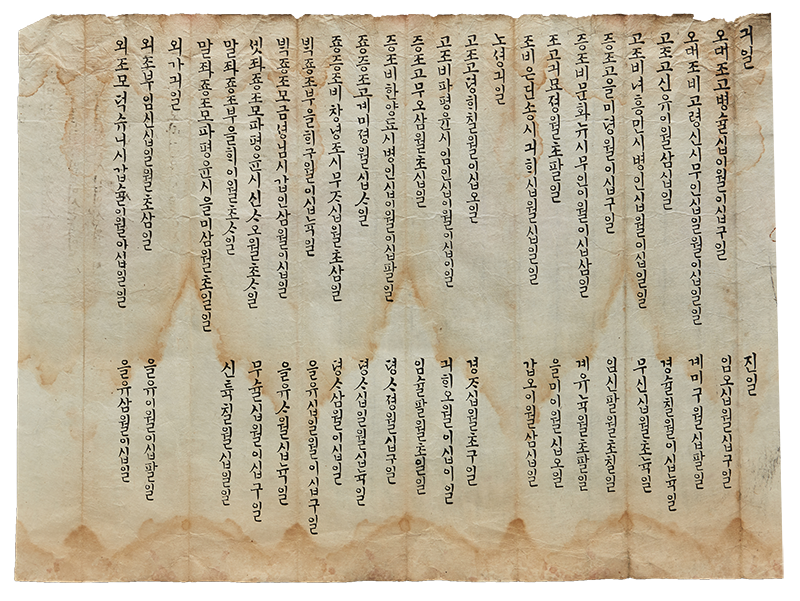 긔일 진일
오대조고병슐십이월이십구일 임오십월십구일
오대조비고령신시무인십일월이십일일 계미구월십팔일
고조고신유이월삼십일 경슐칠월이십뉵일
고조비녀흥민시병인십월이십일일 무신십월초뉵일
증조고을미졍월이십구일 임신팔월초칠일
증조비문화뉴시무인이월이십삼일 계유뉵월초팔일
조고긔묘졍월초팔일 을미이월십오일
조비은진송시긔히십월십일일 갑오이월삼십일
노셩긔일
고조고경히칠월이십오일 경ᄌ십월초구일
고조비파평윤시임인십이월이십이일 긔히오월이십이일
증조고무오삼월초십일 임슐팔월초일일
증조비한양됴시병인십이월이십팔일 뎡ᄉ졍월십구일
죵증조고계미졍월십ᄉ일 뎡ᄉ십일월십뉵일
죵증조비창녕조시무ᄌ십월초삼일 뎡ᄉ삼월이십일
빅죵조부을희구월이십뉵일 을유십일월이십구일
빅죵조모금셩님시갑인삼월이십일 을유ᄉ월십뉵일
좌죵조모파평윤시신ᄉ오월초ᄉ일 무슐십월이십구일
말좌죵조부을희이월초ᄉ일 신튝칠월십일일
말좌죵조모파평윤시을미삼월초일일
외가긔일
외조부임신십일월초삼일 을유이월이십팔일
외조모덕슈니시갑슐이월이십일일 을유삼월이십일